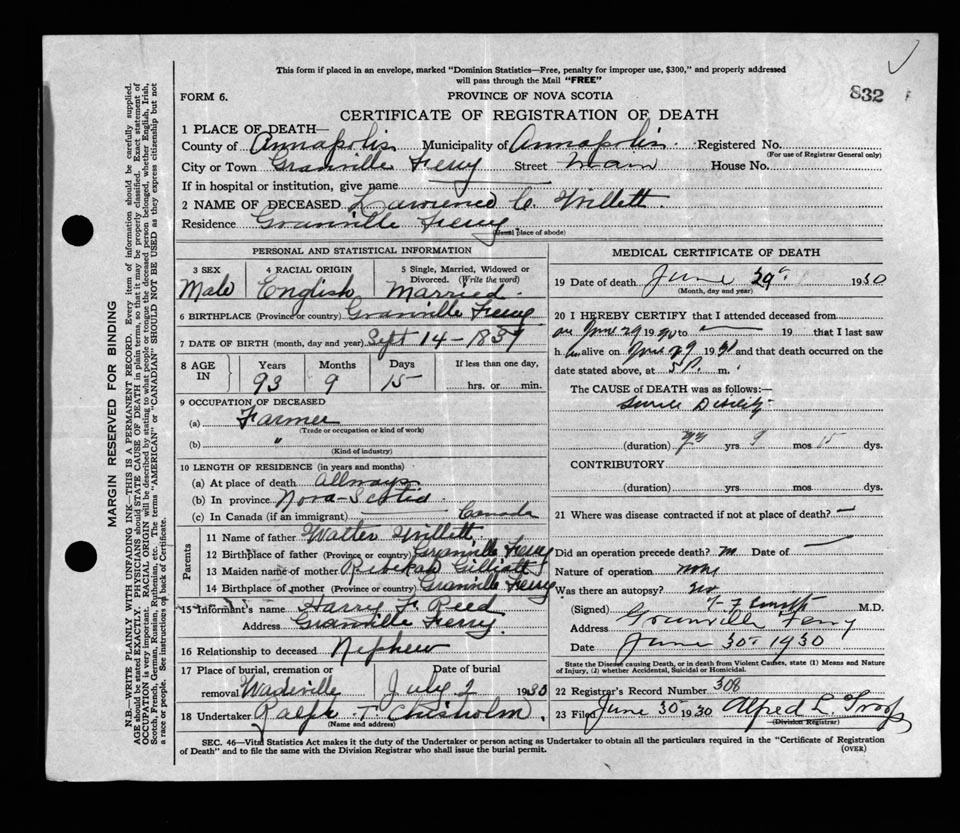 This form if placed in an envelope, marked "Dominion Statistics—Free, penalty for improper use, $300," and properly addressed
will pass through the Mail "FREE"
FORM 6.
PROVINCE OF NOVA SCOTIA
832
CERTIFICATE OF REGISTRATION OF DEATH
1 PLACE OF DEATH—
County of Annapolis Municipality of Annapolis Registered No.
(For use of Registrar General only)
City or Town Granville Ferry Street Main House No.
If in hospital or institution, give name
2 NAME OF DECEASED Lawrence C. Willett
Residence Granville Ferry
(Usual place of abode)
PERSONAL AND STATISTICAL INFORMATION
3 SEX 4 RACIAL ORIGIN 5 Single, Married, Widowed or Divorced. (Write the word)
Male English Married
6 BIRTHPLACE (Province or country) Granville Ferry
7 DATE OF BIRTH (month, day and year) Sept 14-1837
8 AGE IN Years Months Days If less than one day,
93 9 15 hrs. or min.
9 OCCUPATION OF DECEASED
(a) Farmer
(Trade or occupation or kind of work)
(b) "
(Kind of industry)
10 LENGTH OF RESIDENCE (in years and months)
(a) At place of death Allways
(b) In province Nova-Scotia
(c) In Canada (if an immigrant) Canada
Parents
11 Name of father Walter Willett
12 Birthplace of father (Province or country) Granville Ferry
13 Maiden name of mother Rebekah
14 Birthplace of mother (Province or country) Granville Ferry
15 Informant's name Harry F. Reed
Address Granville Ferry
16 Relationship to deceased Nephew
17 Place of burial, cremation or Date of burial
removal Wadeville July 2 1930
18 Undertaker Ralph T Chisholm
(Name and address)
MEDICAL CERTIFICATE OF DEATH
19 Date of death June 29 1930
(Month, day and year)
20 I HEREBY CERTIFY that I attended deceased from
on June 29 1930 to — 19 that I last saw
h im alive on June 29 1930 and that death occurred on the
date stated above, at 5 P. m.
The CAUSE of DEATH was as follows:—
Senile Debility
(duration) 93 yrs 9 mos 15 dys.
CONTRIBUTORY
(duration) yrs. mos. dys.
21 Where was disease contracted if not at place of death? —
Did an operation precede death? no Date of —
Nature of operation none
Was there an autopsy? no
(Signed) M.D.
Address Granville Ferry
Date June 30 1930
State the Disease causing Death, or in death from Violent Causes, state (1) Means and Nature of Injury, (2) whether Accidental, Suicidal or Homicidal.
22 Registrar's Record Number 308
23 Filed June 30 1930 Alfred L. Troop
(Division Registrar)
SEC. 46—Vital Statistics Act makes it the duty of the Undertaker or person acting as Undertaker to obtain all the particulars required in the "Certificate of Registration
of Death" and to file the same with the Division Registrar who shall issue the burial permit.
(OVER)
MARGIN RESERVED FOR BINDING
N.B.—WRITE PLAINLY WITH UNFADING INK—THIS IS A PERMANENT RECORD. Every item of information should be carefully supplied.
AGE should be stated EXACTLY. PHYSICIANS should STATE CAUSE OF DEATH in plain terms, so that it may be properly classified. Exact statement of
OCCUPATION is very important. RACIAL ORIGIN will be described by stating to what people or tongue the deceased person belonged, whether English, Irish,
Scotch, French, German, Russian, Ruthenian, etc. The terms "AMERICAN" or "CANADIAN" SHOULD NOT BE USED as they express citizenship but not
a race or people. See instructions on back of Certificate.